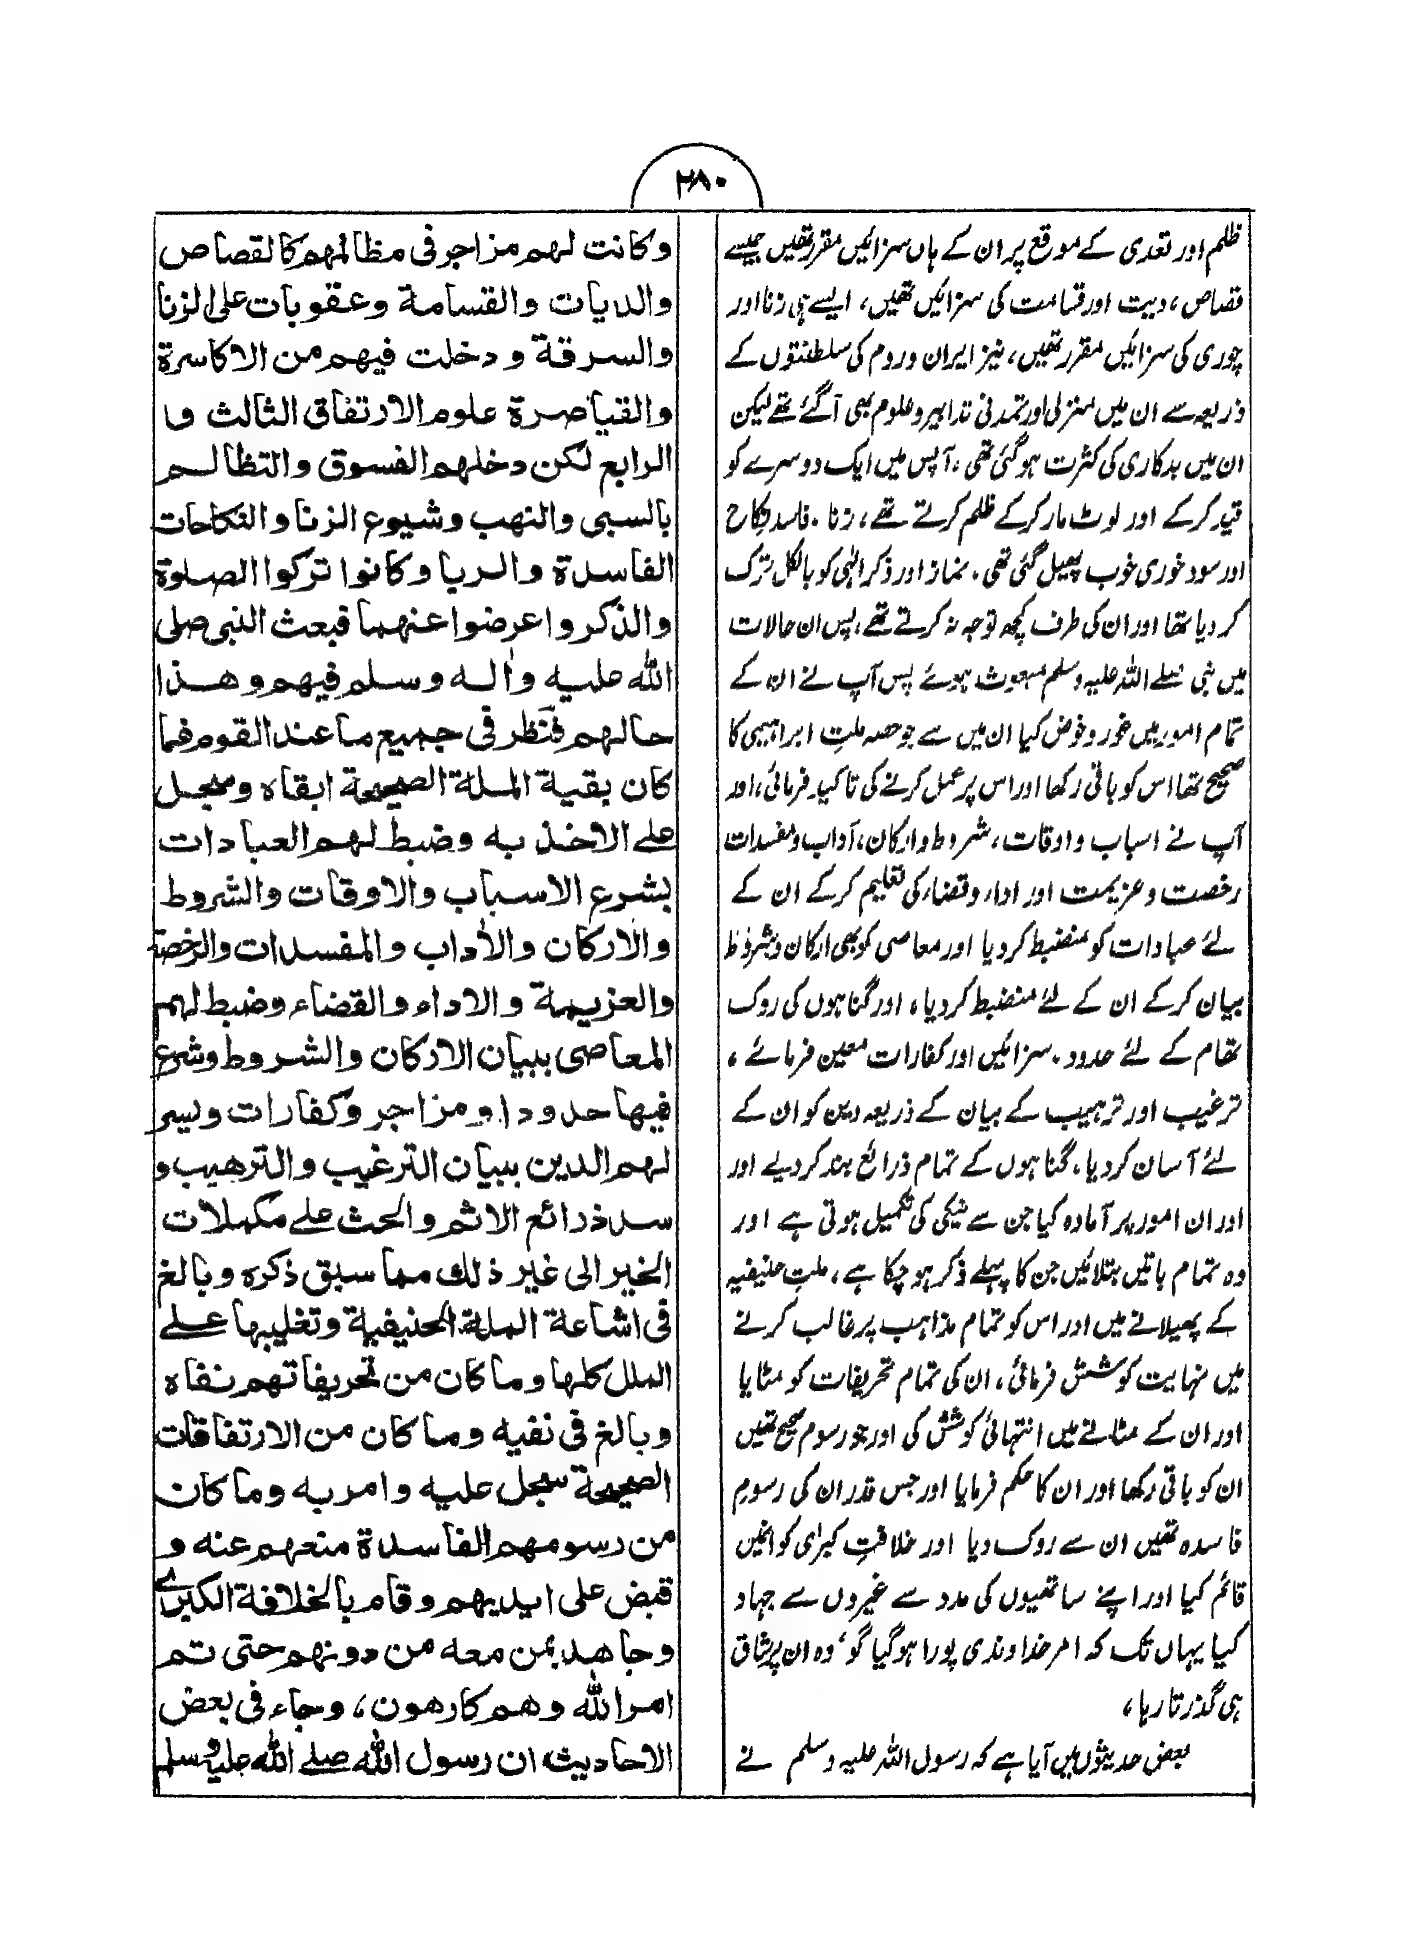 ۲۸۰
ظلم اور تعدی کے موقع پر ان کے ہاں سزائیں مقرر تھیں جیسے
قصاص، دیت اور قسامت کی سزائیں تھیں، ایسے ہی زنا اور
چوری کی سزائیں مقرر تھیں، نیز ایران و روم کی سلطنتوں کے
ذریعہ سے ان میں منزلی اور تمدنی تدابیر و علوم بھی آگئے تھے لیکن
ان میں بدکاری کی کثرت ہوگئی تھی، آپس میں ایک دوسرے کو
قید کرکے اور لوٹ مار کرکے ظلم کرتے تھے، زنا، فاسد نکاح
اور سود خوری خوب پھیل گئی تھی، نماز اور ذکر الٰہی کو بالکل ترک
کر دیا تھا اور ان کی طرف کچھ توجہ نہ کرتے تھے، پس ان حالات
میں نبی صلے اللہ علیہ وسلم مبعوث ہوئے پس آپ نے ان کے
تمام امور میں غور و خوض کیا ان میں سے جو حصہ ملتِ ابراہیمی کا
صحیح تھا اس کو باقی رکھا اور اس پر عمل کرنے کی تاکید فرمائی، اور
آپ نے اسباب و اوقات، شروط و ارکان، آداب و مفسدات
رخصت و عزیمت اور اداء و قضاء کی تعلیم کرکے ان کے
لئے عبادات کو منضبط کر دیا اور معاصی کو بھی ارکان و شروط
بیان کرکے ان کے لئے منضبط کر دیا، اور گناہوں کی روک
تھام کے لئے حدود، سزائیں اور کفارات معین فرمائے،
ترغیب اور ترہیب کے بیان کے ذریعہ دین کو ان کے
لئے آسان کر دیا، گناہوں کے تمام ذرائع بند کر دیے اور
اور ان امور پر آمادہ کیا جن سے نیکی کی تکمیل ہوتی ہے اور
وہ تمام باتیں بتلائیں جن کا پہلے ذکر ہو چکا ہے، ملتِ حنیفیہ
کے پھیلانے میں اور اس کو تمام مذاہب پر غالب کرنے
میں نہایت کوشش فرمائی، ان کی تمام تحریفات کو مٹایا
اور ان کے مٹانے میں انتہائی کوشش کی اور جو رسوم صحیح تھیں
ان کو باقی رکھا اور ان کا حکم فرمایا اور جس قدر ان کی رسومِ
فاسدہ تھیں ان سے روک دیا اور خلافتِ کبرٰی کو انہیں
قائم کیا اور اپنے ساتھیوں کی مدد سے غیروں سے جہاد
کیا یہاں تک کہ امر خداوندی پورا ہوگیا گو وہ ان پر شاق
ہی گذرتا رہا،
بعض حدیثوں میں آیا ہے کہ رسول اللہ علیہ وسلم نے
وكانت لهم مزاجر فى مظالمهم كالقصاص
والديات والقسامة وعقوبات على الزنا
والسرقة ودخلت فيهم من الاكاسرة
والقياصرة علوم الارتفاق الثالث وا
الرابع لكن دخلهم الفسوق والتظالم
بالسبى والنهب وشيوع الزنا والنكاحات
الفاسدة والربا وكانوا تركوا الصلوة
والذكر واعرضوا عنهما فبعث النبى صلى
الله عليه واٰله وسلم فيهم وهذا
حالهم فنظر فى جميع ما عند القوم فما
كان بقية الملة الصحيحة ابقاه وسجل
علے الاخذ به وضبط لهم العبادات
بشرع الاسباب والاوقات والشروط
والاركان والاٰداب والمفسدات والرخصة
والعزيمة والاداء والقضاء وضبط لهم
المعاصى ببيان الاركان والشروط وشرع
فيها حدودا ومزاجر وكفارات ويسر
لهم الدين ببيان الترغيب والترهيب و
سد ذرائع الاثم والحث علے مكملات
الخير الى غير ذلك مما سبق ذكره وبالغ
فى اشاعة الملة الحنيفية وتغليبها علے
الملل كلها وما كان من تحريفاتهم نفاه
وبالغ فى نفيه وما كان من الارتفاقات
الصحيحة سجل عليه وامر به وما كان
من رسومهم الفاسدة منعهم عنه و
قبض على ايديهم وقام بالخلافة الكبرے
وجاهد بمن معه من دونهم حتى تم
امر الله وهم كارهون، وجاء فى بعض
الاحاديث ان رسول الله صلے الله عليه وسلم